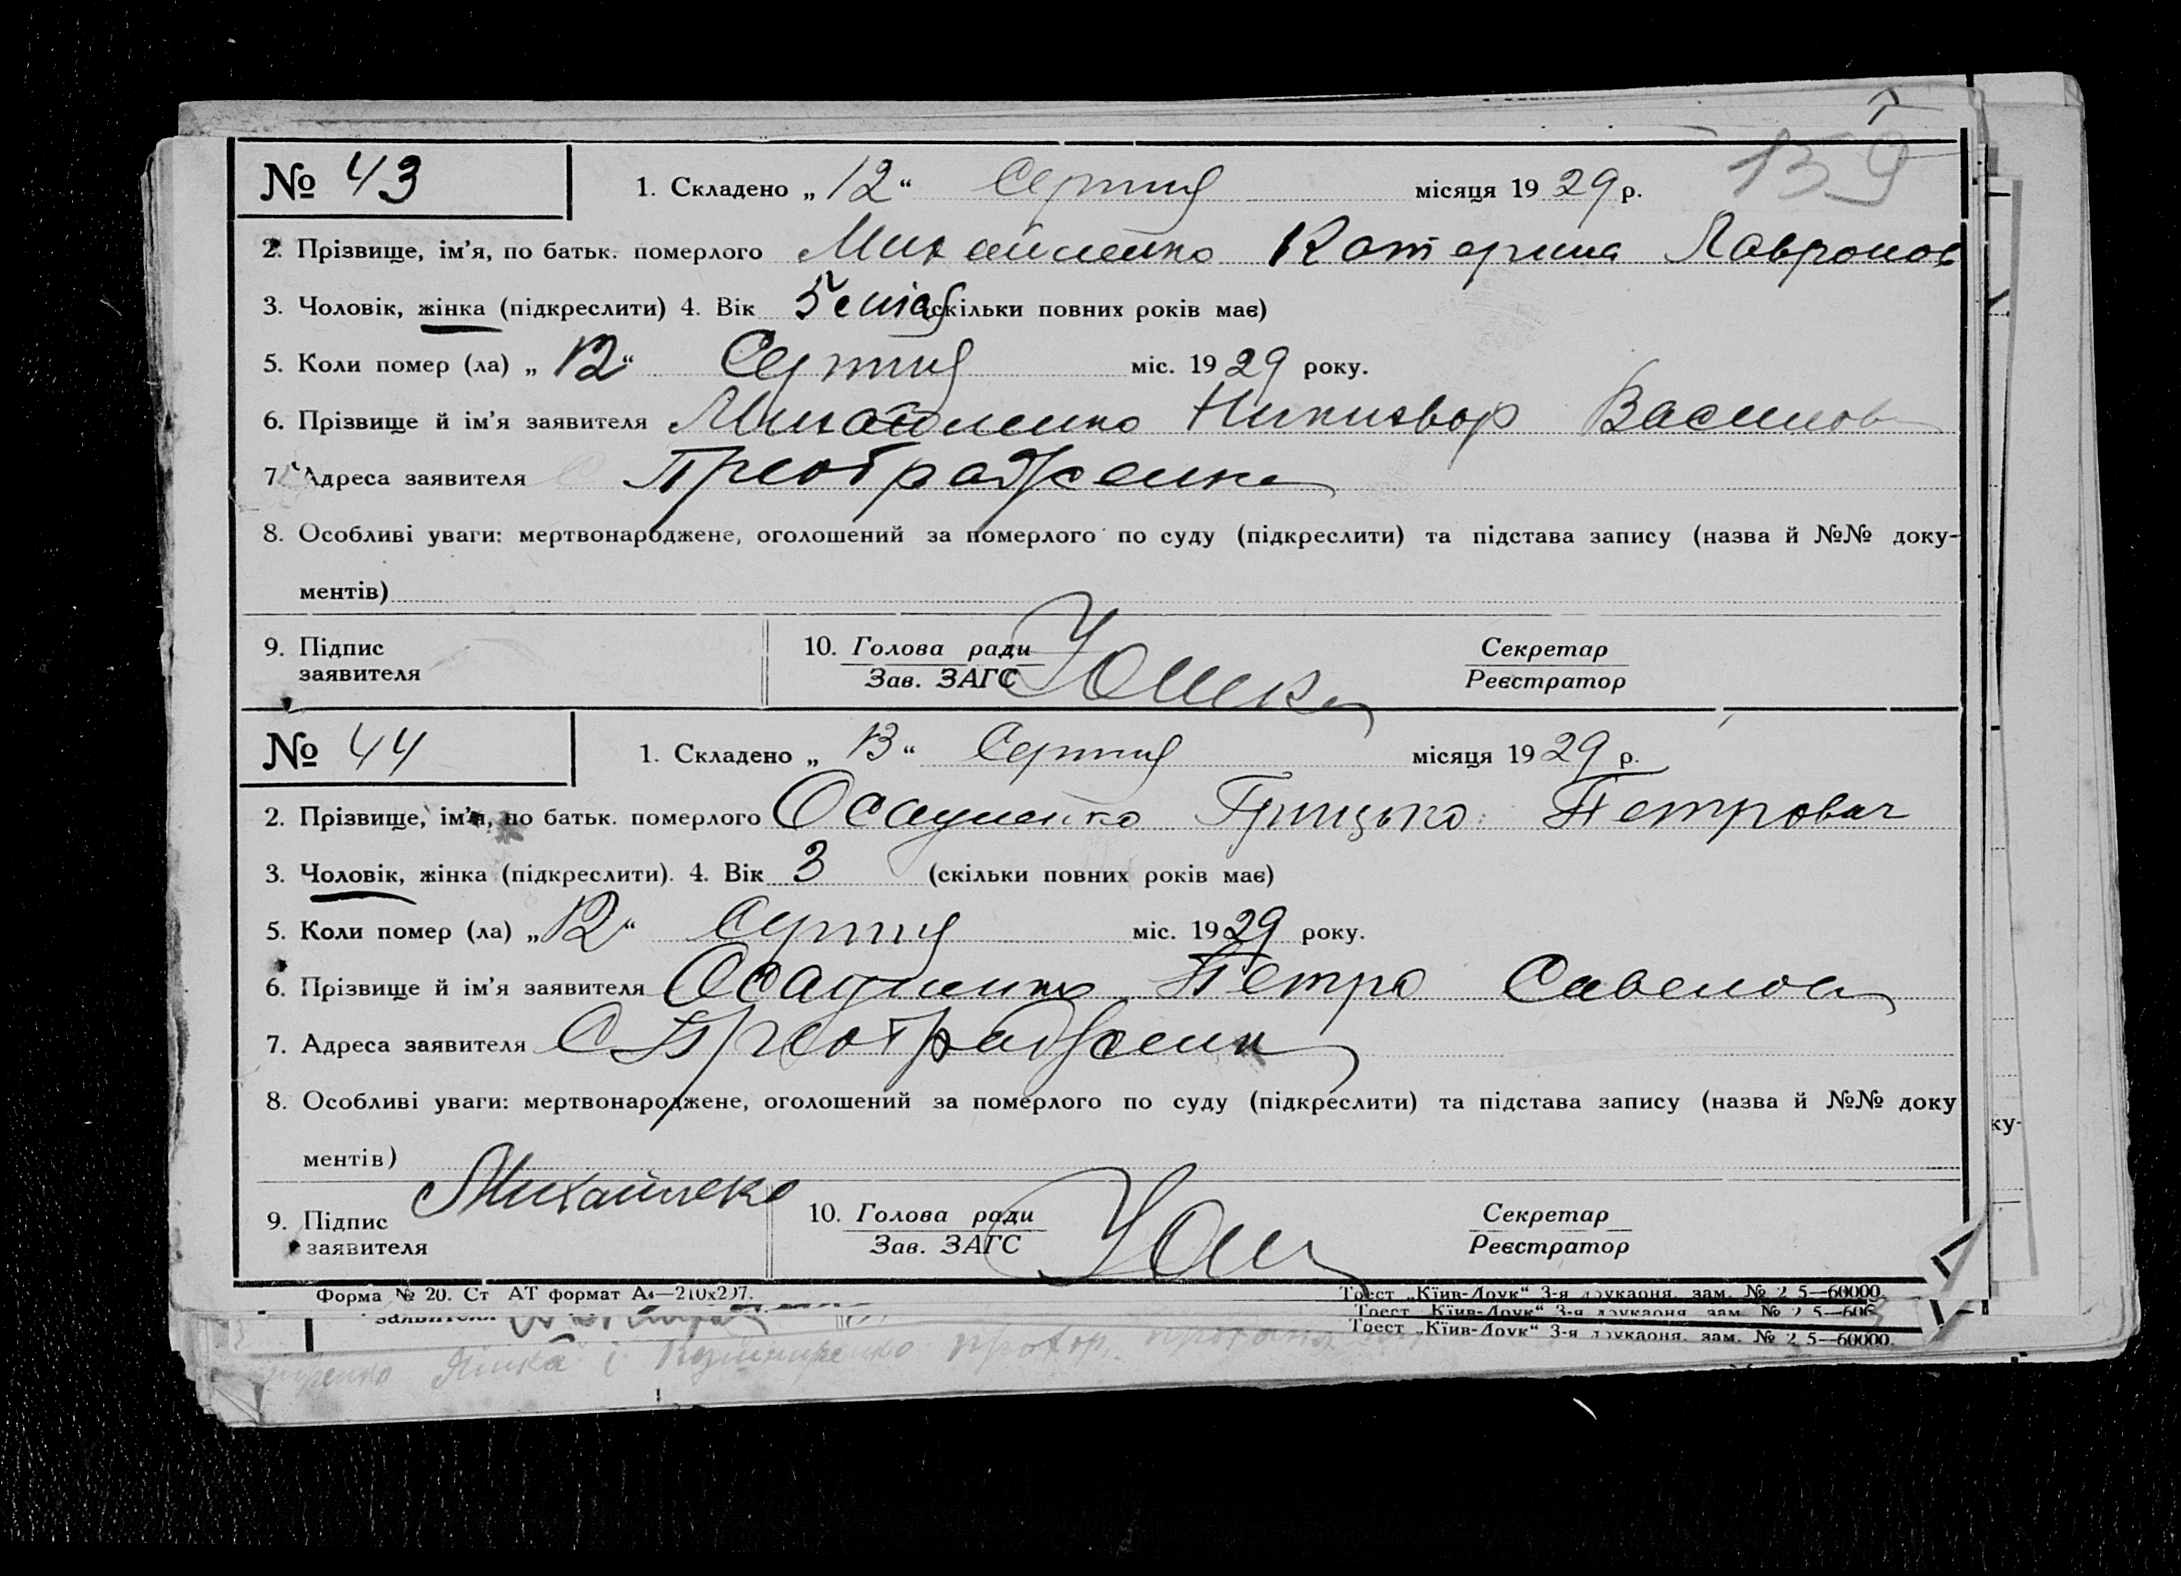 139
№ 43 1. Складено „ 12 “ Серпня місяця 19 29 р.
2. Прізвище, ім’я, по батьк. померлого Михайленко Катерина Лавронов
3. Чоловік, жінка (підкреслити) 4. Вік 5 (скільки повних років має)
5. Коли помер (ла) „ 12 “ Серпня міс. 19 29 року.
6. Прізвище й ім’я заявителя Михайленко Никифор Васильов
7. Адреса заявителя С Преображенка
8. Особливі уваги: мертвонароджене, оголошений за померлого по суду (підкреслити) та підстава запису (назва й №№ доку-
ментів)
9. Підпис заявителя 10. Голова ради Секретар
Зав. ЗАГС Реєстратор
№ 44 1. Складено „ 13 “ Серпня місяця 19 29 р.
2. Прізвище, ім’я, по батьк. померлого Осауленко Грицько Петрович
3. Чоловік, жінка (підкреслити). 4. Вік 3 (скільки повних років має)
5. Коли помер (ла) „ 12 “ Серпня міс. 19 29 року.
6. Прізвище й ім’я заявителя Осауленко Петро Савелов
7. Адреса заявителя С Преображенк
8. Особливі уваги: мертвонароджене, оголошений за померлого по суду (підкреслити) та підстава запису (назва й №№ доку
ментів)
Михайлеко
9. Підпис заявителя 10. Голова ради Секретар
Зав. ЗАГС Реєстратор
Форма № 20. Ст АТ формат А4—210х297. Трест „Київ-Друк“ 3-я друкарня, зам. № 2 5—60000
Трест „Київ-Друк“ 3-я друкарня, зам. № 2 5—606
Трест „Київ-Друк“ 3-я друкарня, зам. № 2 5—60000.